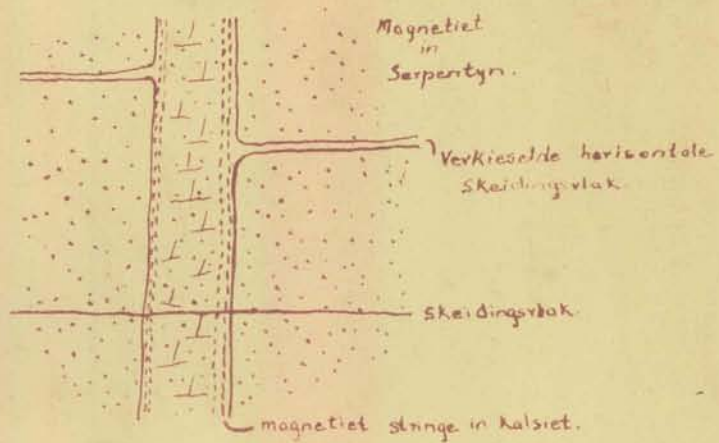 Magnetiet
in
Serpentyn.
Verkieselde horisontale
Skeidingsvlak
Skeidingsvlak
magnetiet stringe in kalsiet.